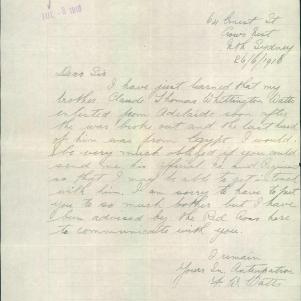 JUL - 3 1918
64 Ernest St
Crows Nest
Nth Sydney
26/6/1918
Dear Sir
I have just learned that my
brother Claude Thomas Whittington Watts
enlisted from Adelaide soon after
the war broke out and the last heard
of him was from Egypt I would
be very much obliged if you could
send me his official no and Regiment
so that I may be able to get in touch
with him. I am sorry to have to put
you to so much bother but I have
been advised by the Red Cross here
to communicate with you.
I remain
Yours In Anticipation
Watts